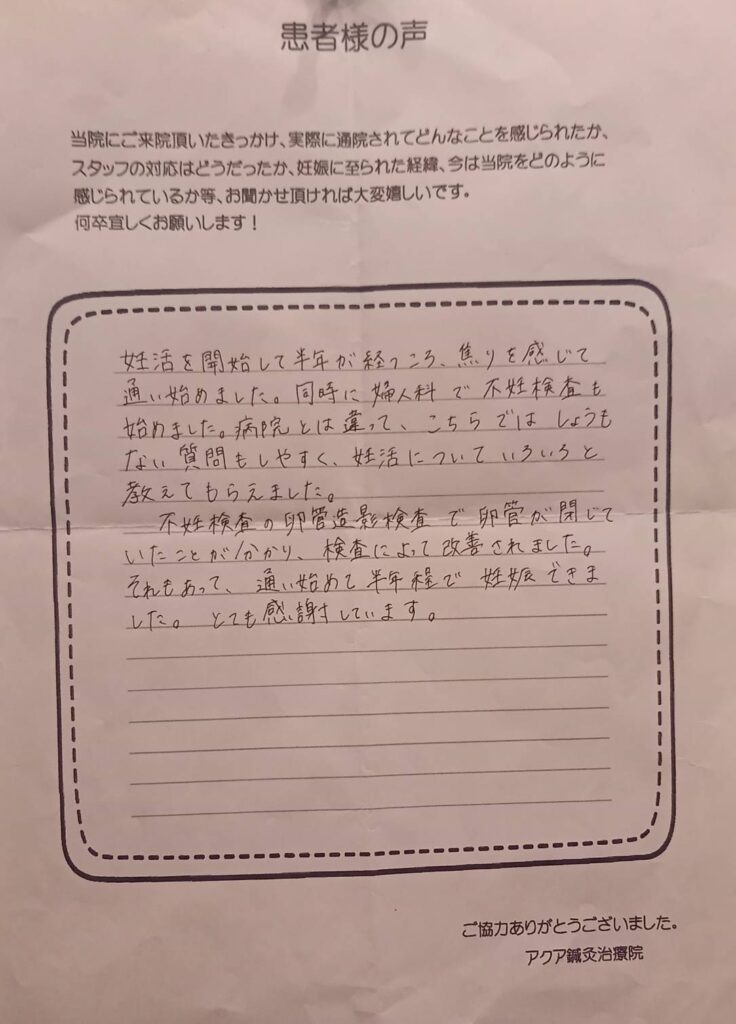 患者様の声
当院にご来院頂いたきっかけ、実際に通院されてどんなことを感じられたか、
スタッフの対応はどうだったか、妊娠に至られた経緯、今は当院をどのように
感じられているか等、お聞かせ頂ければ大変嬉しいです。
何卒宜しくお願いします！
妊活を開始して半年が経つころ、焦りを感じて
通い始めました。同時に婦人科で不妊検査も
始めました。病院とは違って、こちらではしょうも
ない質問もしやすく、妊活についていろいろと
教えてもらえました。
不妊検査の卵管造影検査で卵管が閉じて
いたことが分かり、検査によって改善されました。
それもあって、通い始めて半年程で妊娠できま
した。とても感謝しています。
ご協力ありがとうございました。
アクア鍼灸治療院